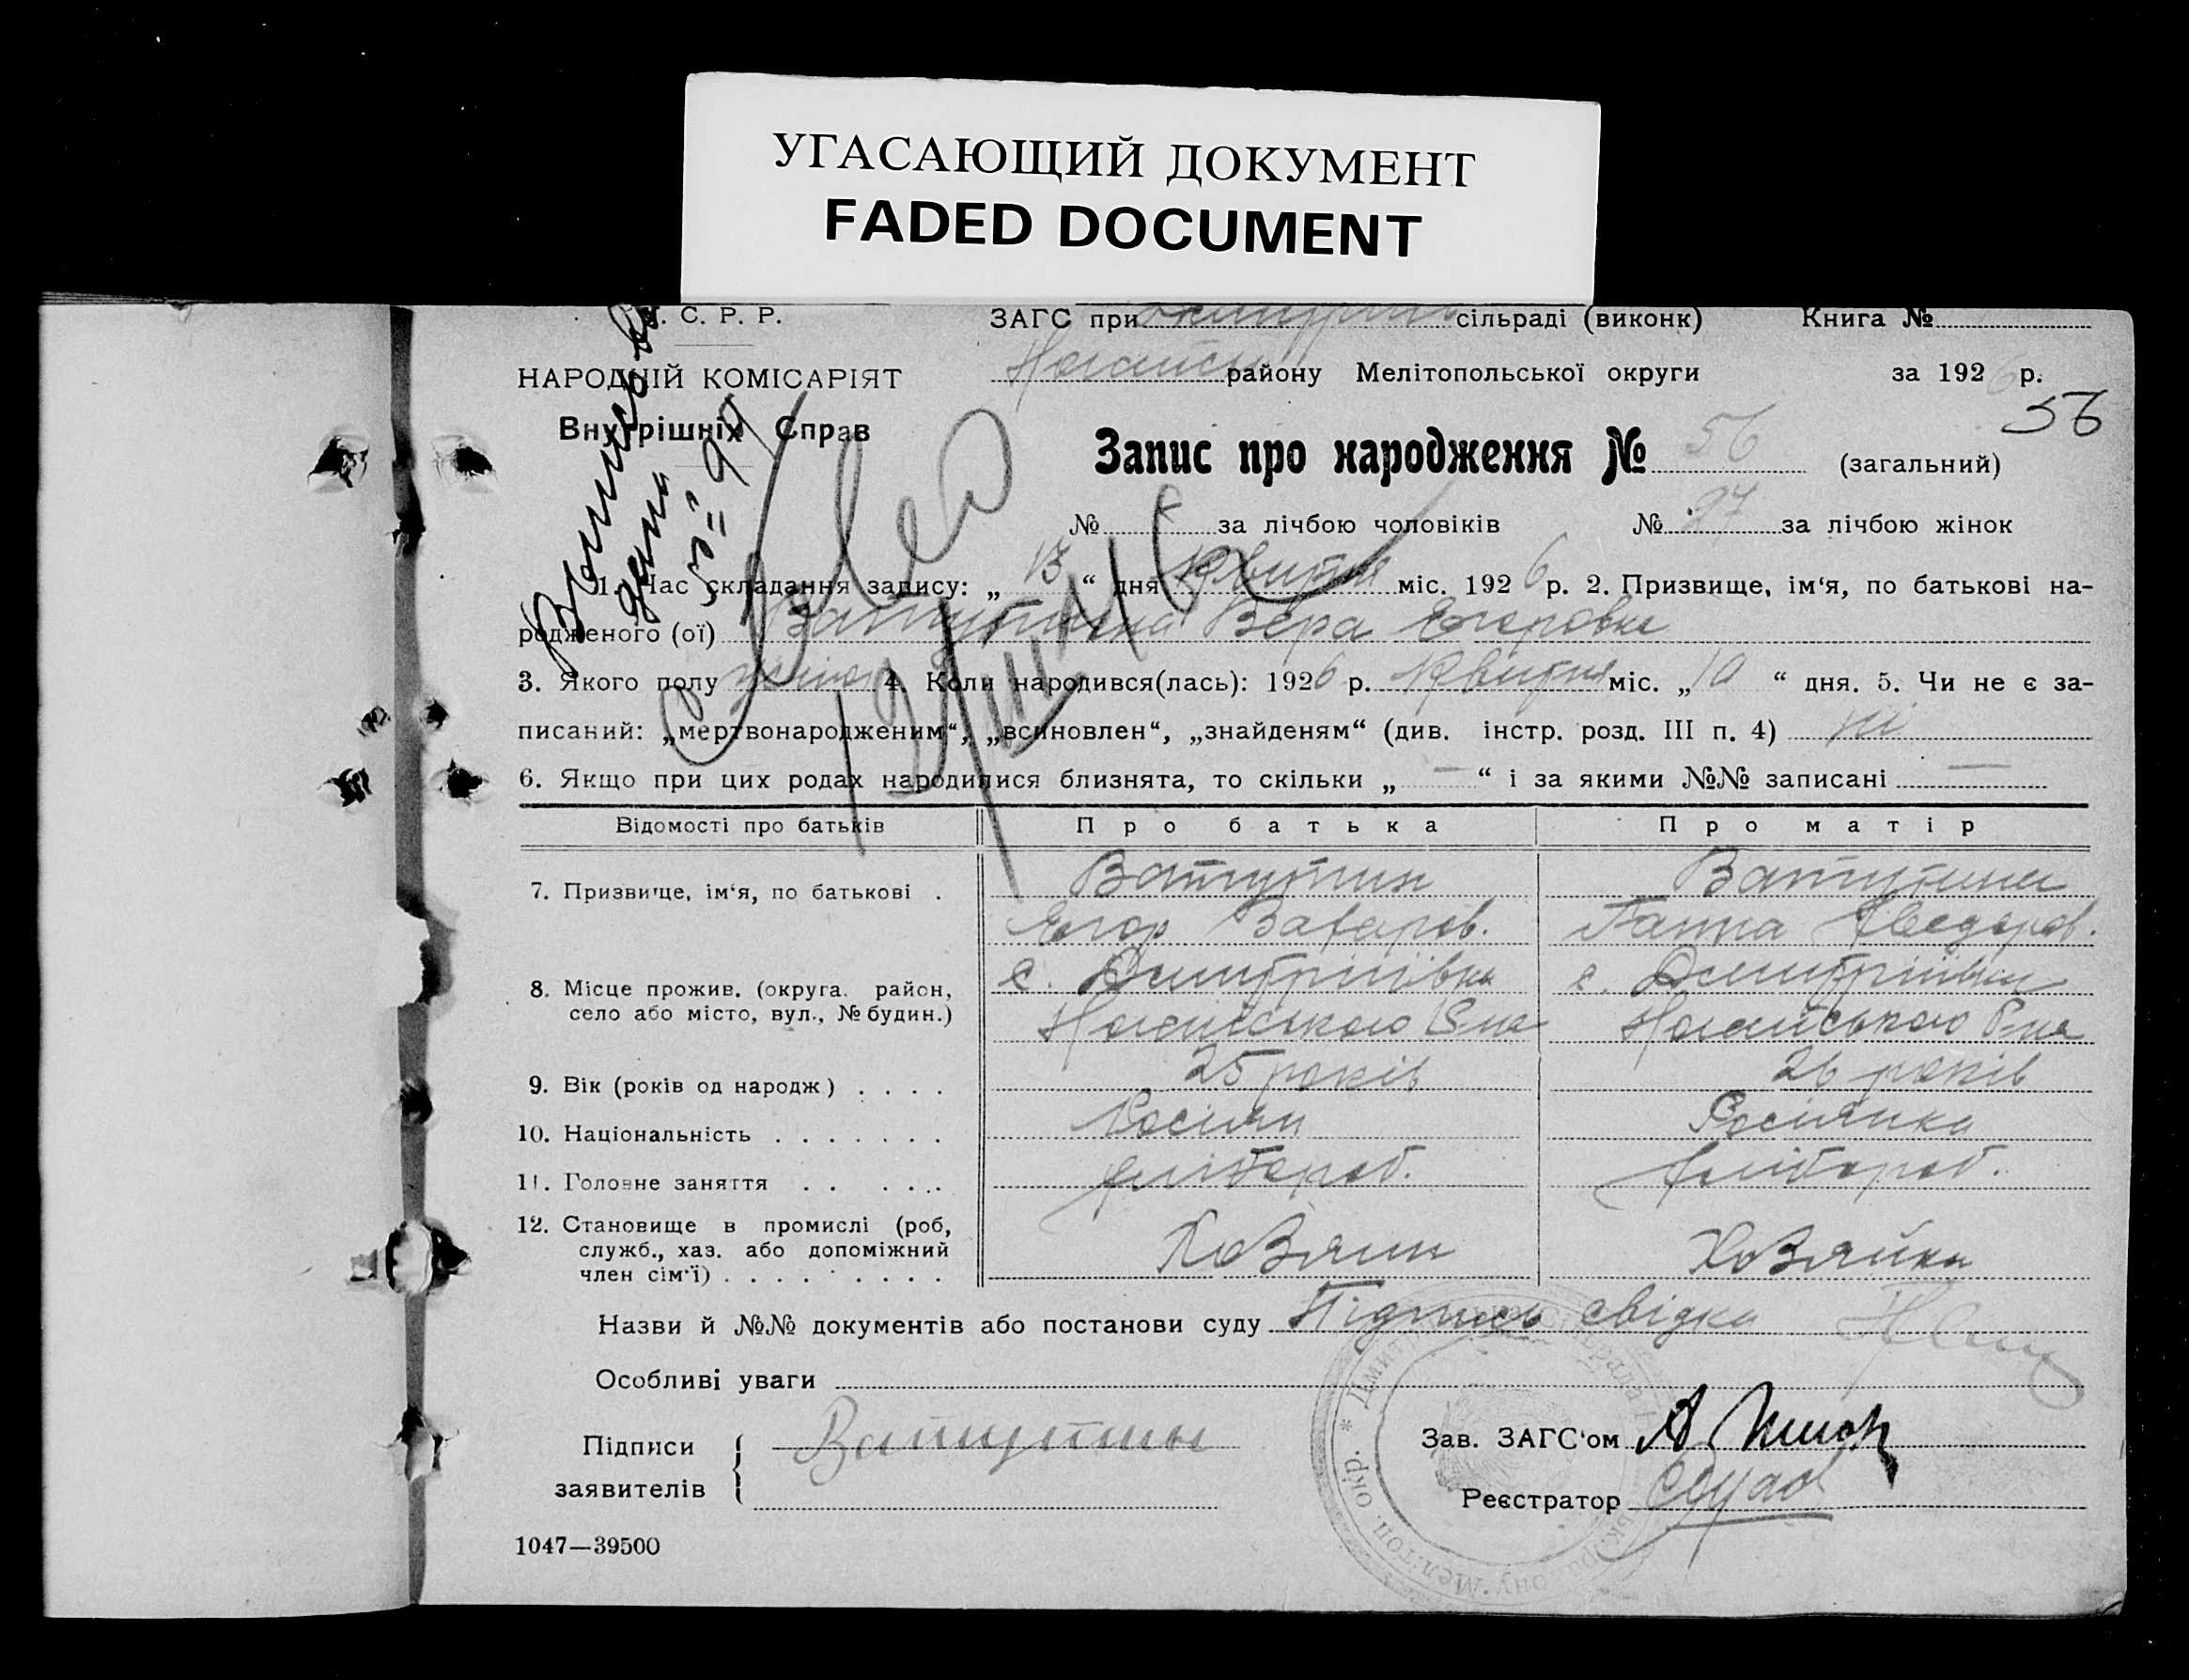 УГАСАЮЩИЙ ДОКУМЕНТ
FADED DOCUMENT
. С. Р. Р.
ЗАГС при сільраді (виконк) Книга №
НАРОДНІЙ КОМІСАРІЯТ
района Мелітопольської округи за 1926 р.
Внутрішніх Справ
56
Запис про народження № 56 (загальний)
№ за лічбою чоловіків № 27 за лічбою жінок
1. Час складання запису: „ 13 “ дня Квитня міс. 1926 р. 2. Призвище, ім‘я, по батькові на-
родженого (ої) Ватутина Вера Егоровна
3. Якого полу 4. Коли народився(лась): 1926 р. Квитня міс. „ 10 “ дня. 5. Чи не є за-
писаний: „мертвонародженим“, „всиновлен“, „знайденям“ (див. інстр. розд. III п. 4) ні
6. Якщо при цих родах народилися близнята, то скільки „ — “ і за якими №№ записані —
Відомості про батьків Про батька Про матір
7. Призвище, ім‘я, по батькові . Ватутин Ватутина
Егор Захаров. Ганна Федоров.
8. Місце прожив. (округа, район, с. Дмитріівка с. Дмитріівка
село або місто, вул., № будин.) Ногайського Р-на Ногайського Р-на
9. Вік (років од народж) . . . . 25 років 26 років
10. Національність . . . . . . . Росіян Росіянка
11. Головне заняття . . . . . . хлібороб. хлібороб.
12. Становище в промислі (роб,
служб., хаз. або допоміжний Хозяин Хозяйка
член сім‘ї) . . . . . . . . .
Назви й №№ документів або постанови суду Підпись свідка
Особливі уваги
Підписи Ватутин
заявителів
Зав. ЗАГС‘ом
Реєстратор
1047—39500